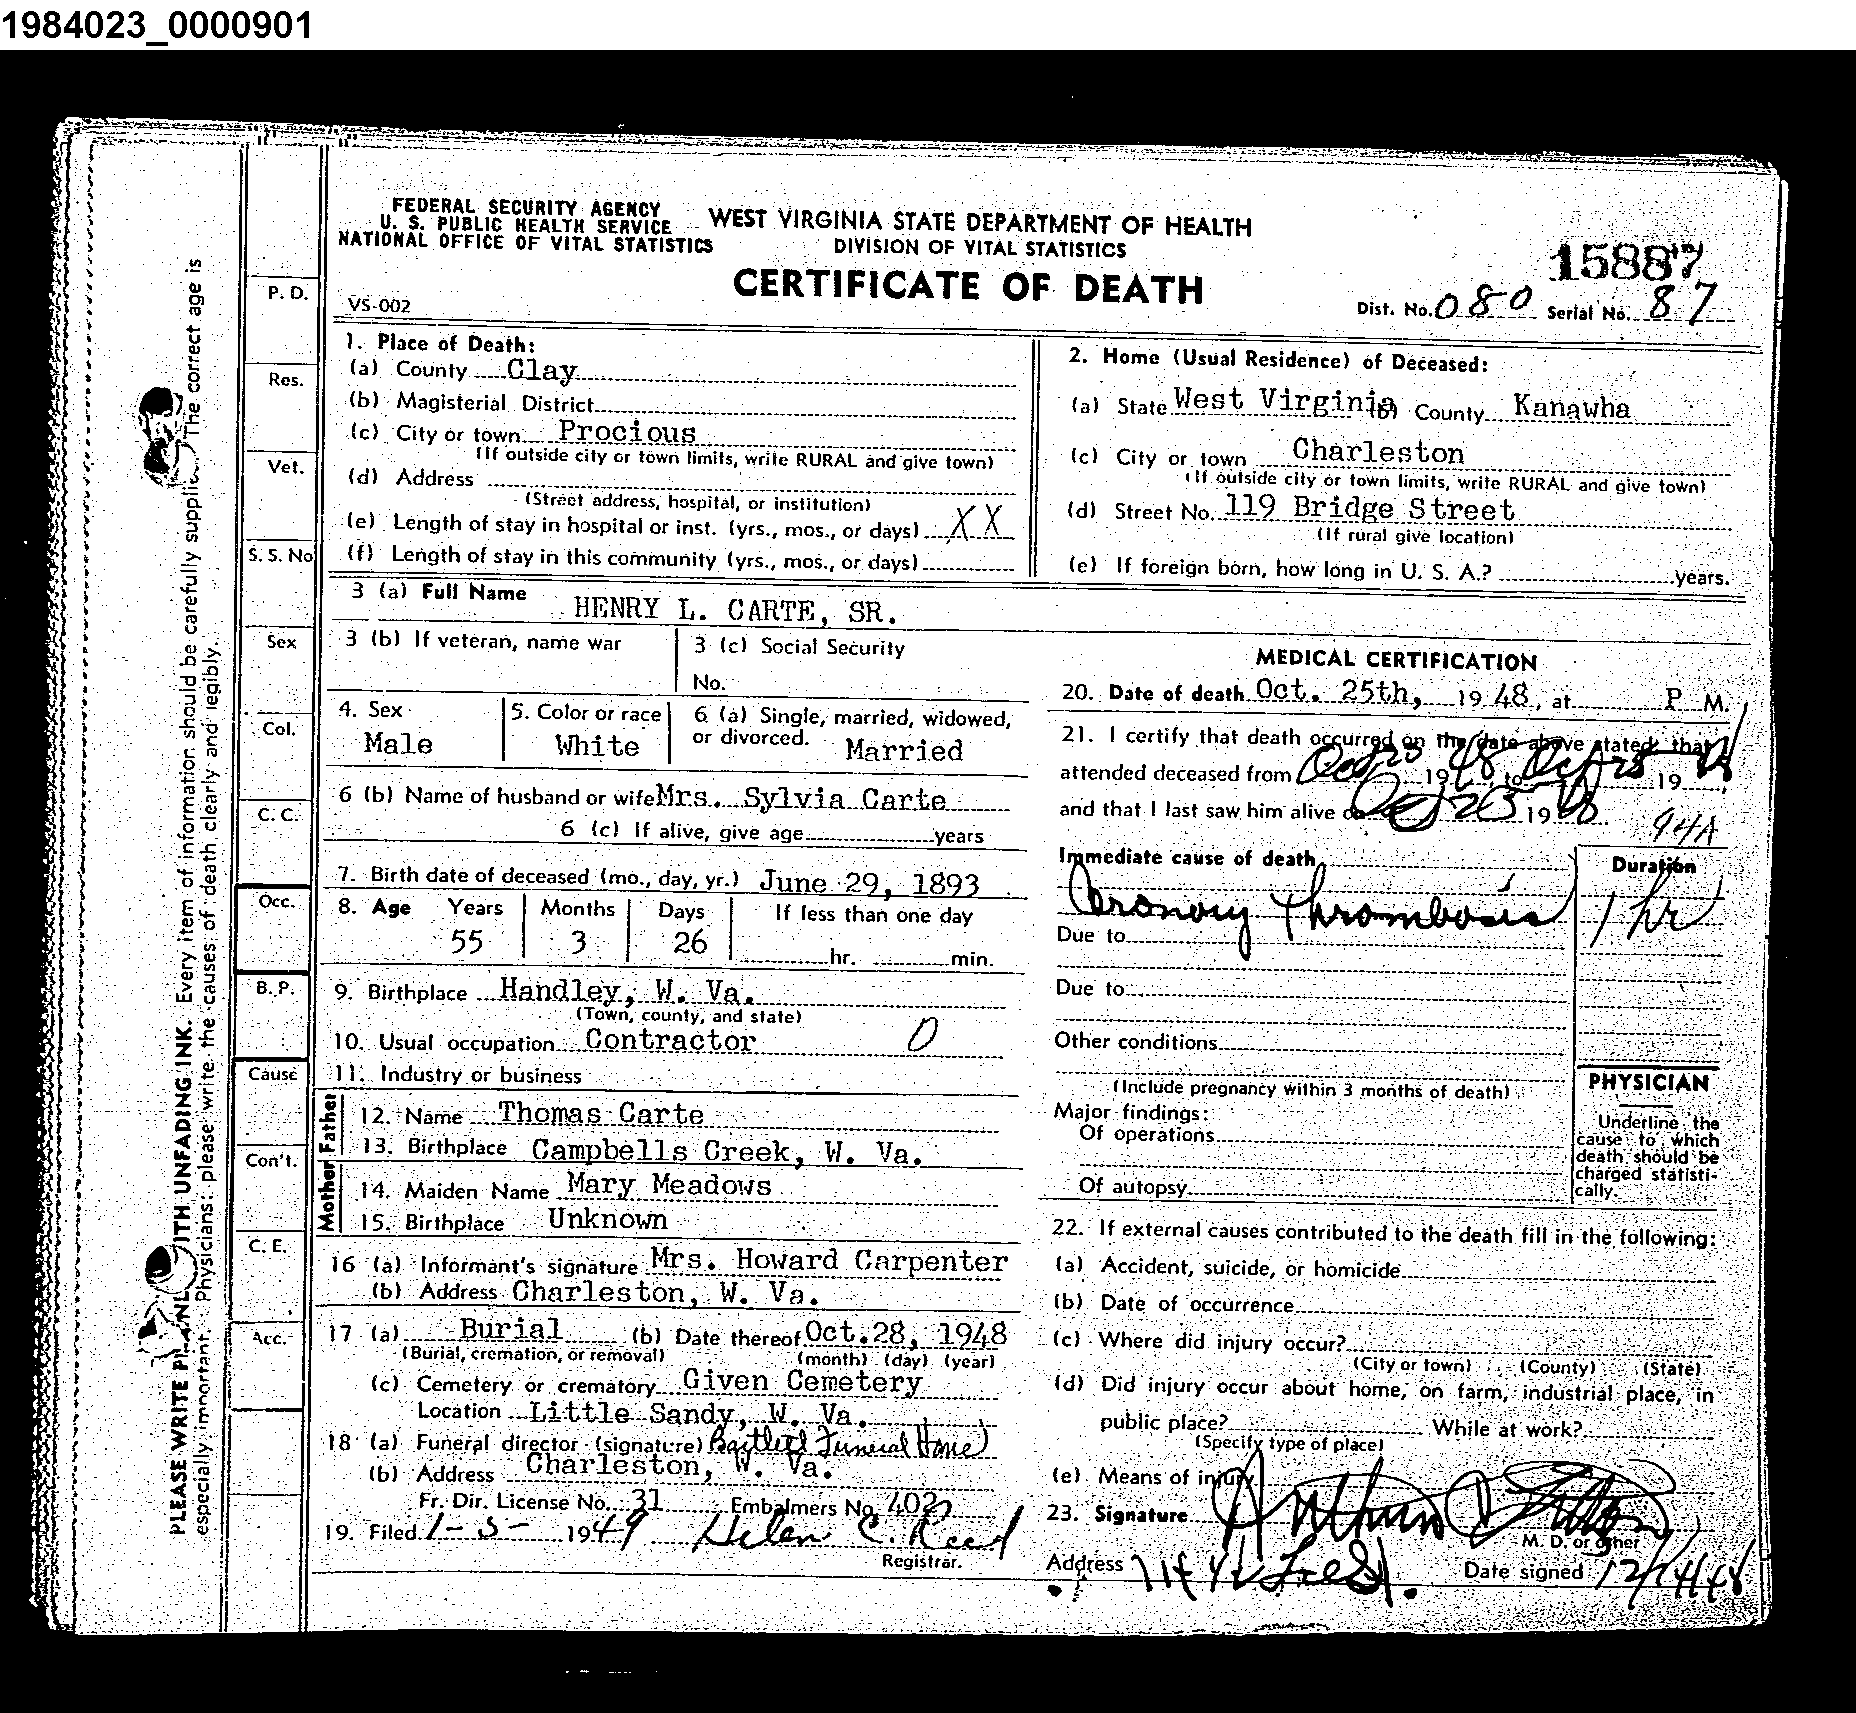 1984023_0000901
FEDERAL SECURITY AGENCY
U. S. PUBLIC HEALTH SERVICE
NATIONAL OFFICE OF VITAL STATISTICS
WEST VIRGINIA STATE DEPARTMENT OF HEALTH
DIVISION OF VITAL STATISTICS
CERTIFICATE OF DEATH
15887
VS-002
Dist. No. 080 Serial No. 87
1. Place of Death:
(a) County Clay
(b) Magisterial District
(c) City or town Procious
(If outside city or town limits, write RURAL and give town)
(d) Address
(Street address, hospital, or institution)
(e) Length of stay in hospital or inst. (yrs., mos., or days) XX
(f) Length of stay in this community (yrs., mos., or days)
2. Home (Usual Residence) of Deceased:
(a) State West Virginia (b) County Kanawha
(c) City or town Charleston
(If outside city or town limits, write RURAL and give town)
(d) Street No. 119 Bridge Street
(If rural give location)
(e) If foreign born, how long in U. S. A.? years.
3 (a) Full Name HENRY L. CARTE, SR.
3 (b) If veteran, name war
3 (c) Social Security
No.
4. Sex
Male
5. Color or race
White
6 (a) Single, married, widowed,
or divorced. Married
6 (b) Name of husband or wife Mrs. Sylvia Carte
6 (c) If alive, give age years
7. Birth date of deceased (mo., day, yr.) June 29, 1893
8. Age Years Months Days If less than one day
55 3 26 hr. min.
9. Birthplace Handley, W. Va.
(Town, county, and state)
10. Usual occupation Contractor 0
11. Industry or business
Father
12. Name Thomas Carte
13. Birthplace Campbells Creek, W. Va.
Mother
14. Maiden Name Mary Meadows
15. Birthplace Unknown
16 (a) Informant's signature Mrs. Howard Carpenter
(b) Address Charleston, W. Va.
17 (a) Burial (b) Date thereof Oct. 28, 1948
(Burial, cremation, or removal) (month) (day) (year)
(c) Cemetery or crematory Given Cemetery
Location Little Sandy, W. Va.
18 (a) Funeral director (signature) Bartlett Funeral Home
(b) Address Charleston, W. Va.
Fr. Dir. License No. 31 Embalmers No. 402
19. Filed 1-5- 1949 Helen C. Reed
Registrar.
MEDICAL CERTIFICATION
20. Date of death Oct. 25th, 1948, at P M.
21. I certify that death occurred on the date above stated; that I
attended deceased from Oct 1948 to Oct 19
and that I last saw him alive on Oct 25 1948
94A
Immediate cause of death
Coronary Thrombosis
Duration
1 hr
Due to
Due to
Other conditions
(Include pregnancy within 3 months of death)
Major findings:
Of operations
Of autopsy
PHYSICIAN
Underline the
cause to which
death should be
charged statisti-
cally.
22. If external causes contributed to the death fill in the following:
(a) Accident, suicide, or homicide
(b) Date of occurrence
(c) Where did injury occur?
(City or town) (County) (State)
(d) Did injury occur about home, on farm, industrial place, in
public place? While at work?
(Specify type of place)
(e) Means of injury
23. Signature
M. D. or other
Address
Date signed
P. D.
Res.
Vet.
S. S. No
Sex
Col.
C. C.
Occ.
B. P.
Cause
Con't.
C. E.
Acc.
PLEASE WRITE WITH UNFADING INK. Every item of information should be carefully supplied. The correct age is
especially important. Physicians: please write the causes of death clearly and legibly.